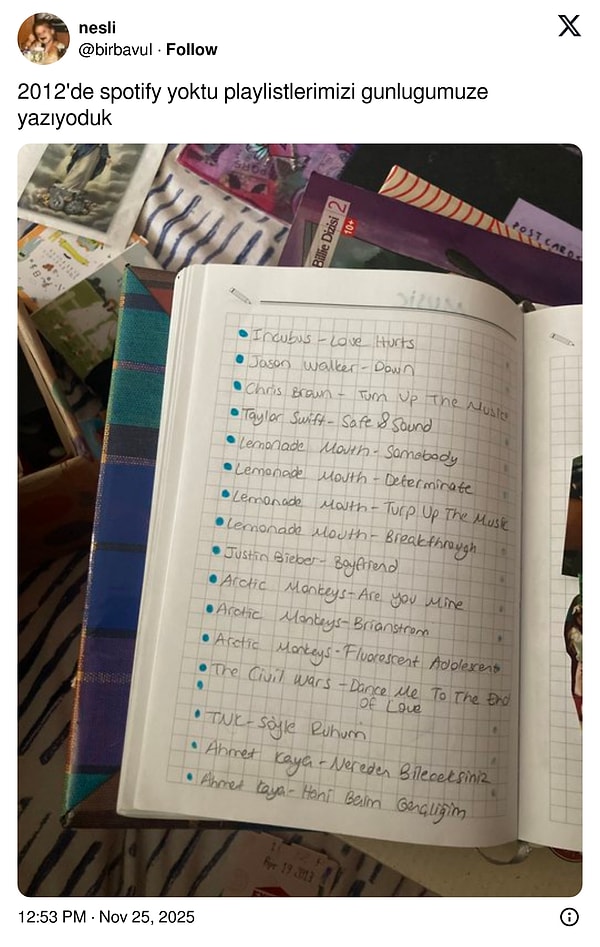 nesli
@birbavul · Follow
2012'de spotify yoktu playlistlerimizi gunlugumuze
yazıyoduk
Billie Dizisi 2
10+
POSTCARDS
MUSIC
Incubus - Love Hurts
Jason Walker - Down
Chris Brown - Turn Up The Music
Taylor Swift - Safe & Sound
Lemonade Mouth - Somebody
Lemonade Mouth - Determinate
Lemonade Mouth - Turp Up The Music
Lemonade Mouth - Breakthrough
Justin Bieber - Boyfriend
Arctic Monkeys - Are You Mine
Arctic Monkeys - Brianstrom
Arctic Monkeys - Fluorescent Adolescent
The Civil Wars - Dance Me To The End
Of Love
TNK - Söyle Ruhum
Ahmet Kaya - Nereden Bileceksiniz
Ahmet Kaya - Hani Beim Gençliğim
Apr 19 2013
12:53 PM · Nov 25, 2025